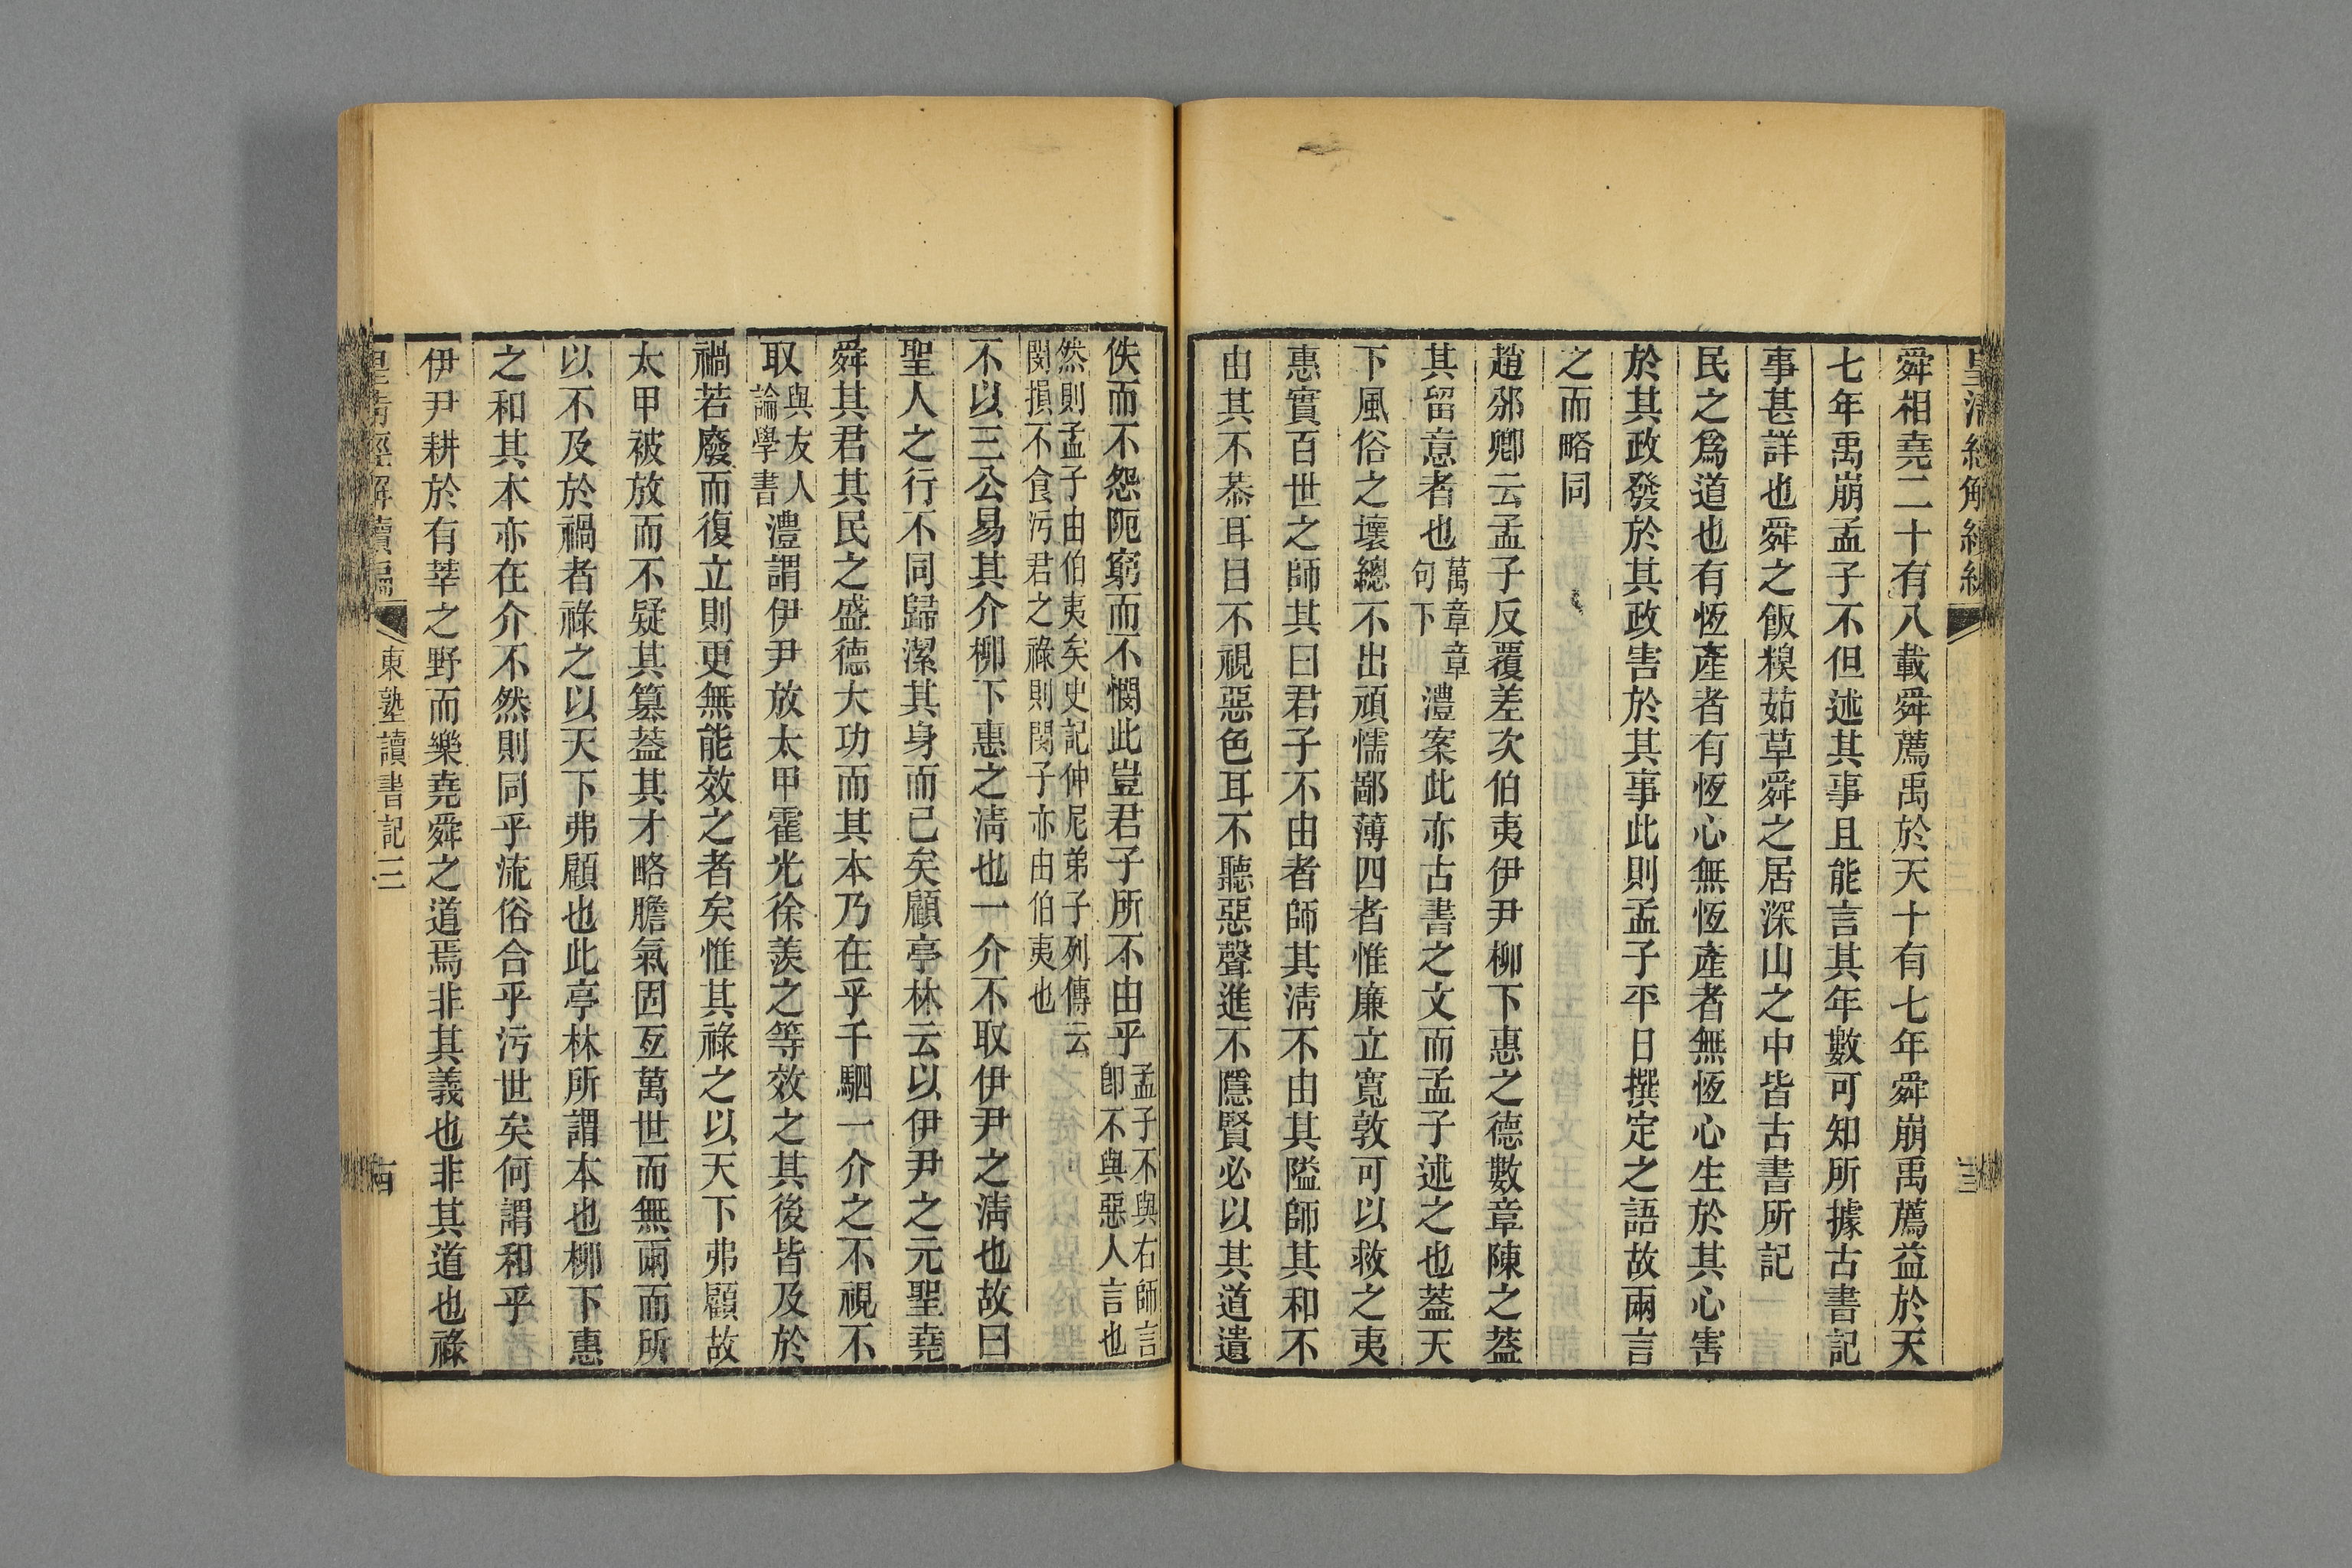 舜相堯二十有八載舜薦禹於天十有七年舜崩禹薦益於天
七年禹崩孟子不但述其事且能言其年數可知所據古書記
事甚詳也舜之飯糗茹草舜之居深山之中皆古書所記
民之爲道也有恆產者有恆心無恆產者無恆心生於其心害
於其政發於其政害於其事此則孟子平日撰定之語故兩言
之而略同
趙邠卿云孟子反覆差次伯夷伊尹柳下惠之德數章陳之葢
其留意者也萬章章句下澧案此亦古書之文而孟子述之也葢天
下風俗之壞總不出頑懦鄙薄四者惟廉立寬敦可以救之夷
惠實百世之師其曰君子不由者師其淸不由其隘師其和不
由其不恭耳目不視惡色耳不聽惡聲進不隱賢必以其道遺
佚而不怨阨窮而不憫此豈君子所不由乎孟子不與右師言卽不與惡人言也
然則孟子由伯夷矣史記仲尼弟子列傳云閔損不食污君之祿則閔子亦由伯夷也
不以三公易其介柳下惠之淸也一介不取伊尹之淸也故曰
聖人之行不同歸潔其身而已矣顧亭林云以伊尹之元聖堯
舜其君其民之盛德大功而其本乃在乎千駟一介之不視不
取與友人論學書澧謂伊尹放太甲霍光徐羨之等效之其後皆及於
禍若廢而復立則更無能效之者矣惟其祿之以天下弗顧故
太甲被放而不疑其篡葢其才略膽氣固亙萬世而無兩而所
以不及於禍者祿之以天下弗顧也此亭林所謂本也柳下惠
之和其本亦在介不然則同乎流俗合乎污世矣何謂和乎
伊尹耕於有莘之野而樂堯舜之道焉非其義也非其道也祿
皇淸經解續編 東塾讀書記三